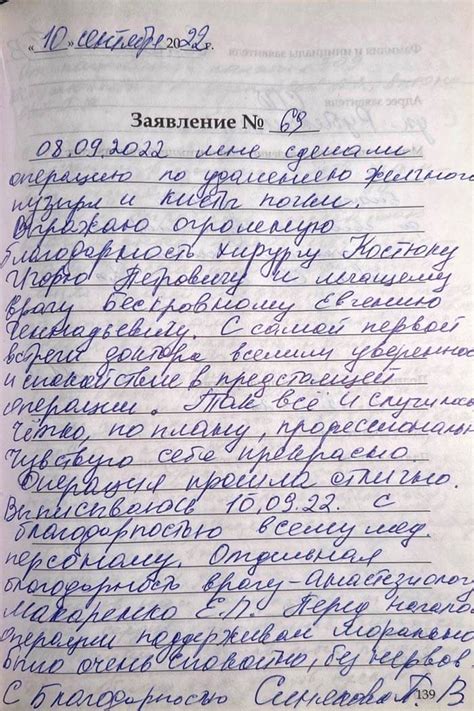 «10» сентября 2022 г.
Заявление № 69
08.09.2022 мне сделали
операцию по удалению желчного
пузыря и кисты почки.
Выражаю огромную
благодарность хирургу Костюку
Игорю Петровичу и лечащему
врагу Бескровному Евгению
Геннадьевичу. С самой первой
встречи доктора вселили уверенност
и спокойствие в предстоящей
операции. Так всё и случилос
Чётко, по плану, профессиональн
Чувствую себя прекрасно.
Операция прошла отлично.
Выписываюсь 10.09.22. С
благодарностью всему мед.
персоналу. Отдельная
благодарность врачу-анастезиолог
Макаренко Е.П. Перед начало
операции поддерживал морально
было очень спокойно, без нервов
С благодарностью В
139